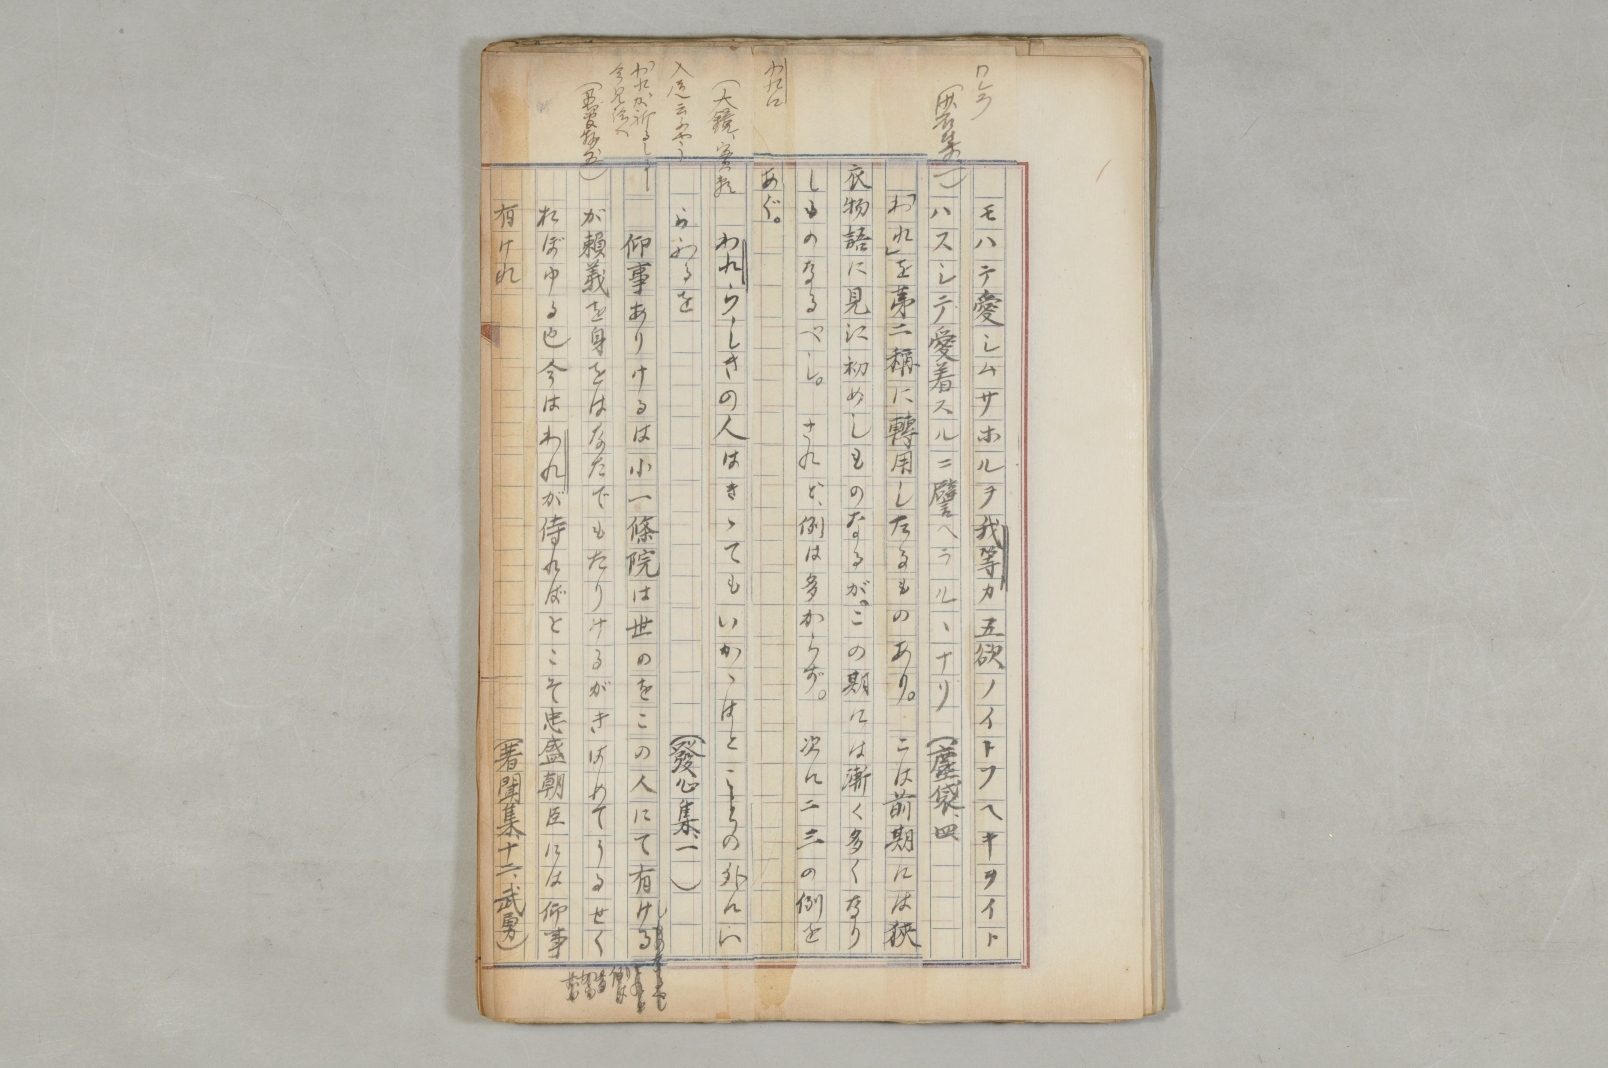 モハテ愛シムサホルヲ我等カ五欲ノイトフヘキヲイト
ハスシテ愛着スルニ譬ヘラルヽナリ (塵袋、四)
「われ」を第二稱に轉用したるものあり。こは前期には狹
衣物語に見江初めしものなるが、この期には漸く多くなり
しものなるべし。されど、例は多からず。次に二三の例を
あぐ。
われらしきの人はきゝてもいかゝはとこゝろの外にい
らふるを (發心集、一)
仰事ありけるは小一條院は世のをこの人にて有ける
が賴義を身をはなたでもたりけるがきはめてうるせく
おぼゆる也今はわれが侍ればとこそ忠盛朝臣には仰事
有けれ (著聞集、十二、武勇)
ワレラ
われに
(大鏡、實賴)
入道云やう